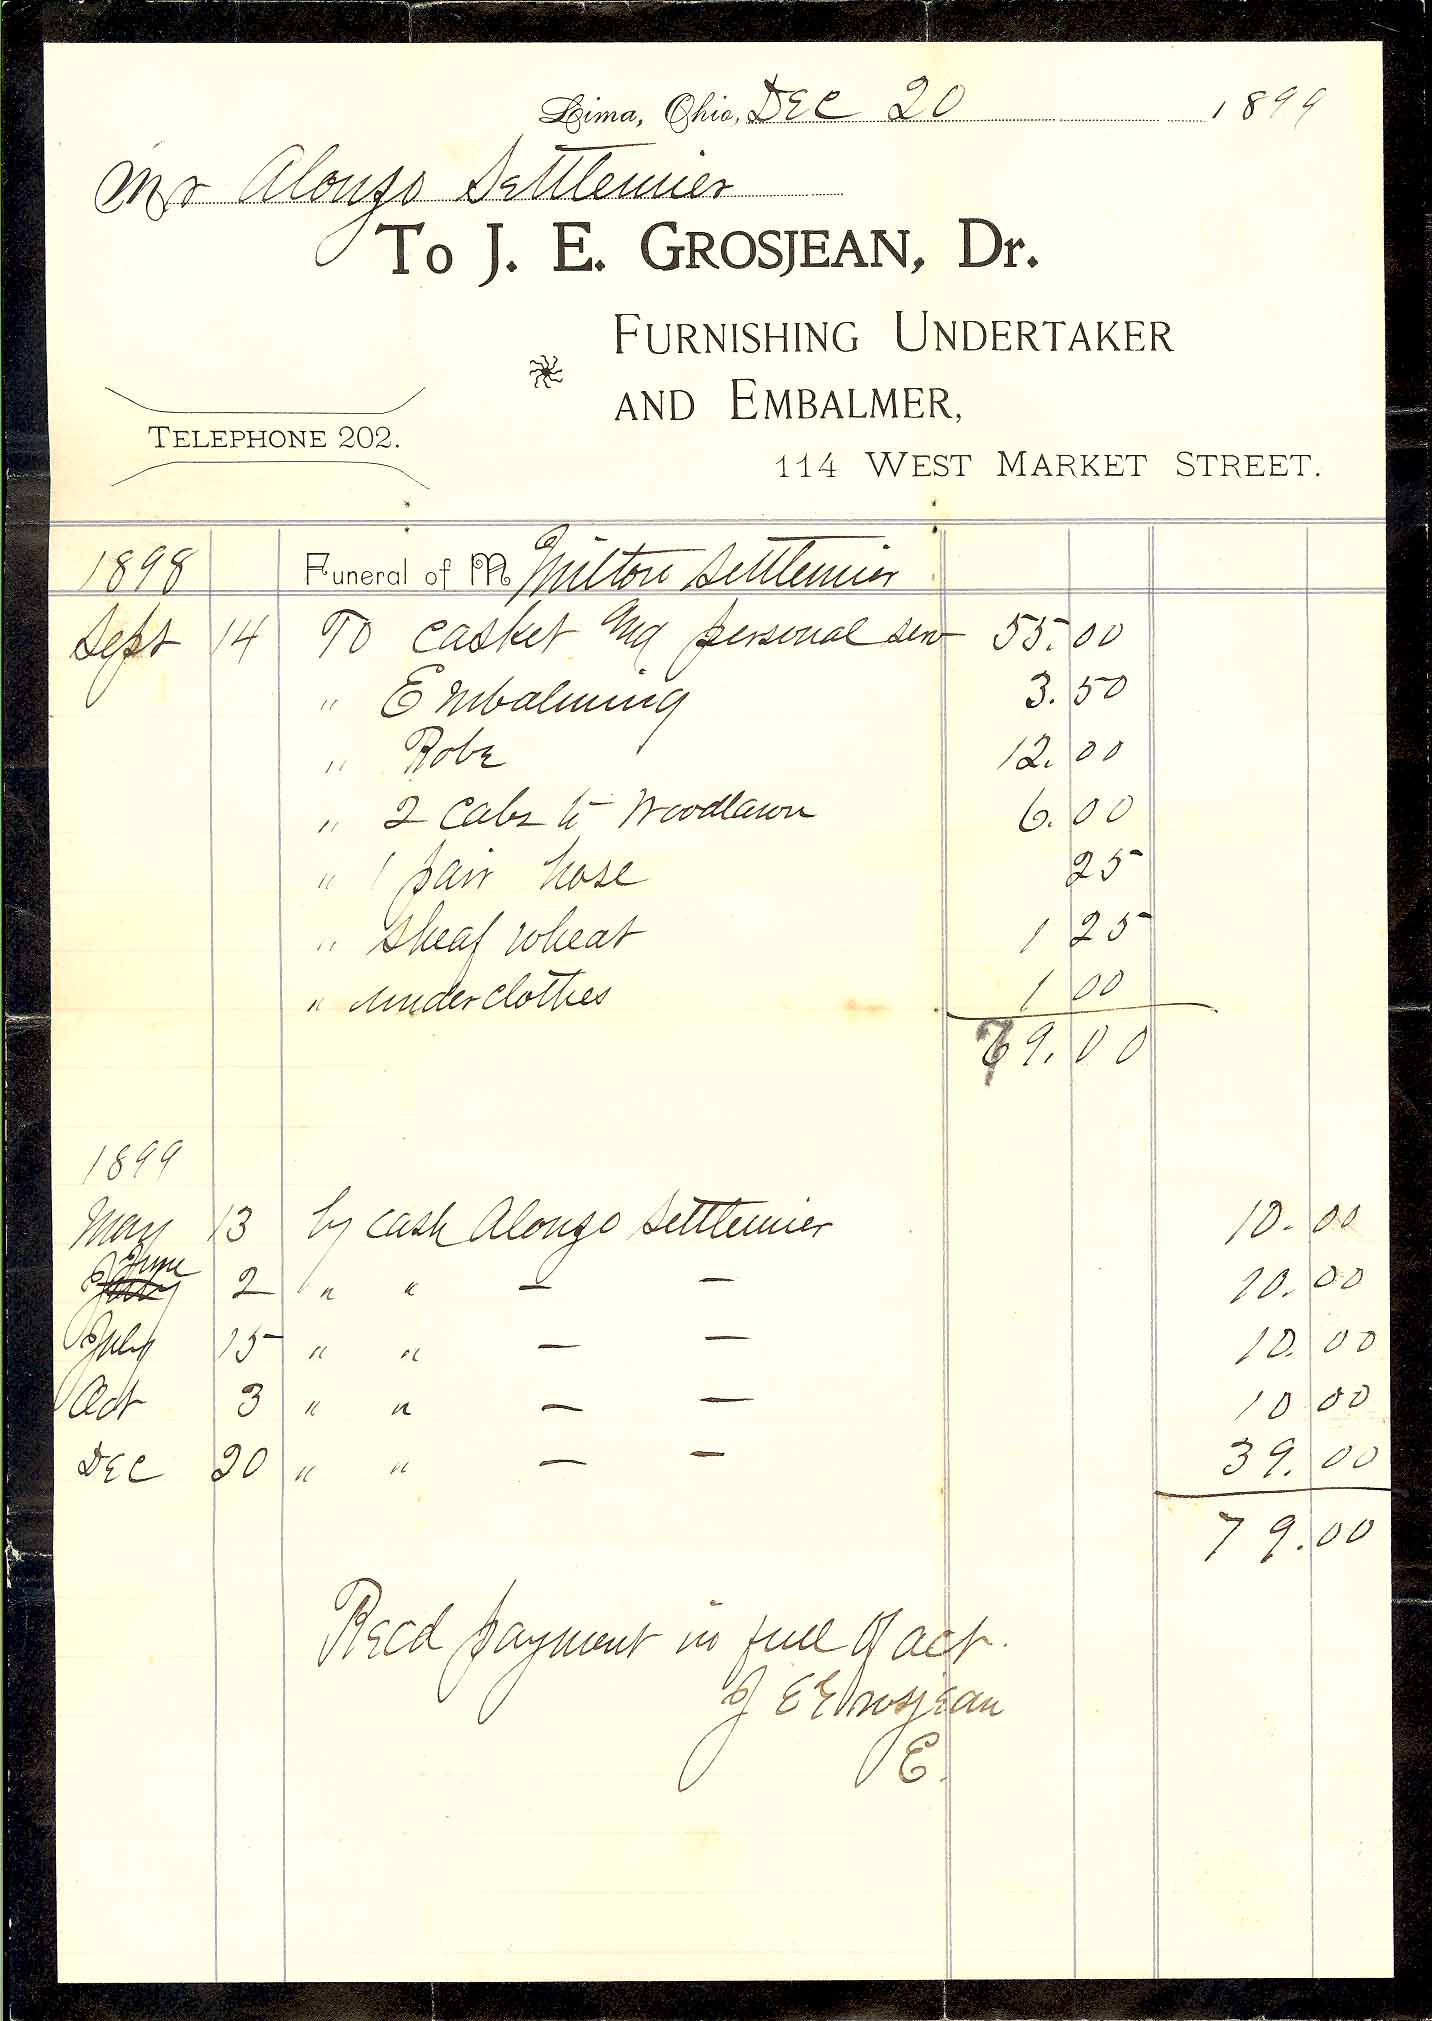 Lima, Ohio, Dec 20 1899
Mr Alonzo Settlemier
To J. E. GROSJEAN, Dr.
FURNISHING UNDERTAKER
AND EMBALMER,
TELEPHONE 202.
114 WEST MARKET STREET.
1898 Funeral of M Milton Settlemier
Sept 14 To casket and personal serv 55.00
" Embalming 3.50
" Robe 12.00
" 2 cabs to Woodlawn 6.00
" 1 pair hose 25
" sheaf wheat 1 25
" underclothes 1 00
79.00
1899
May 13 by cash Alonzo Settlemier 10.00
June 2 " " — — 10.00
July 15 " " — — 10.00
Oct 3 " " — — 10 00
Dec 20 " " — — 39.00
79.00
Recd payment in full of act.
J E Grosjean
E.